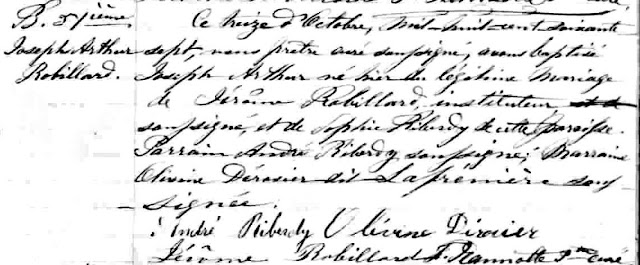 B. 57ième
Joseph Arthur
Robillard.
Ce treize d'Octobre, mil-huit-cent soixante
sept, nous prêtre curé soussigné, avons baptisé
Joseph Arthur né hier du légitime mariage
de Jérôme Robillard, instituteur
soussigné, et de Sophie Riberdy de cette paroisse.
Parrain André Riberdy soussigné; Marraine
Olivine Dérosier dit Lapremière sous
signée.
André Riberdy Olévine Dérosier
Jérôme Robillard F. Jeannotte Ptre curé